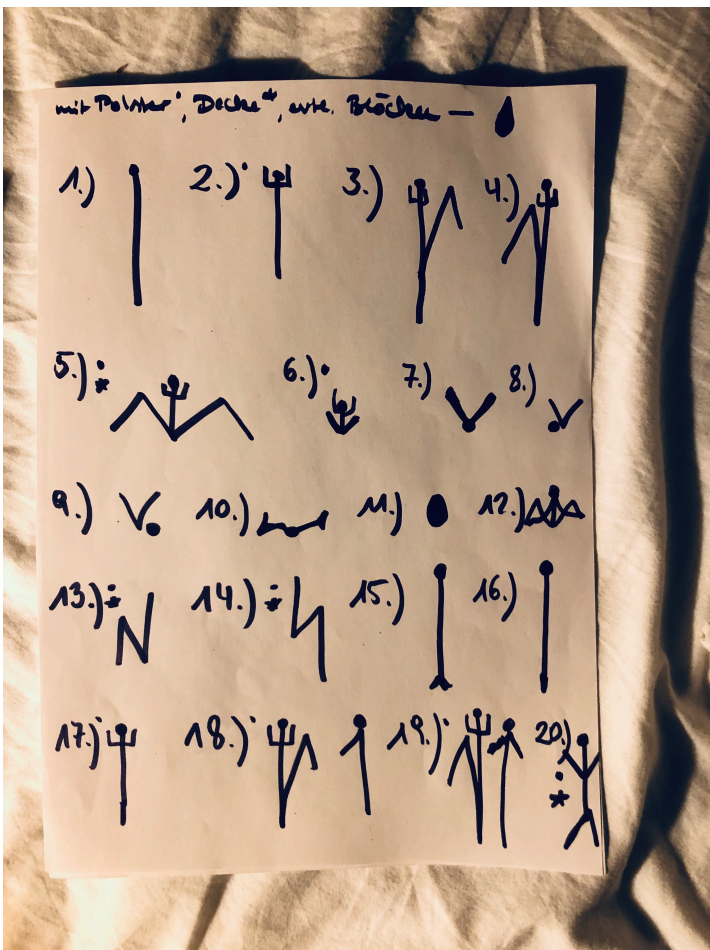 mit Polster•, Decke*, evtl. Blöcken —
1.) 2.)• 3.) 4.)
5.)•* 6.)• 7.) 8.)
9.) 10.) 11.) 12.)
13.)•* 14.)•* 15.) 16.)
17.)• 18.)• 19.)• 20.)•*